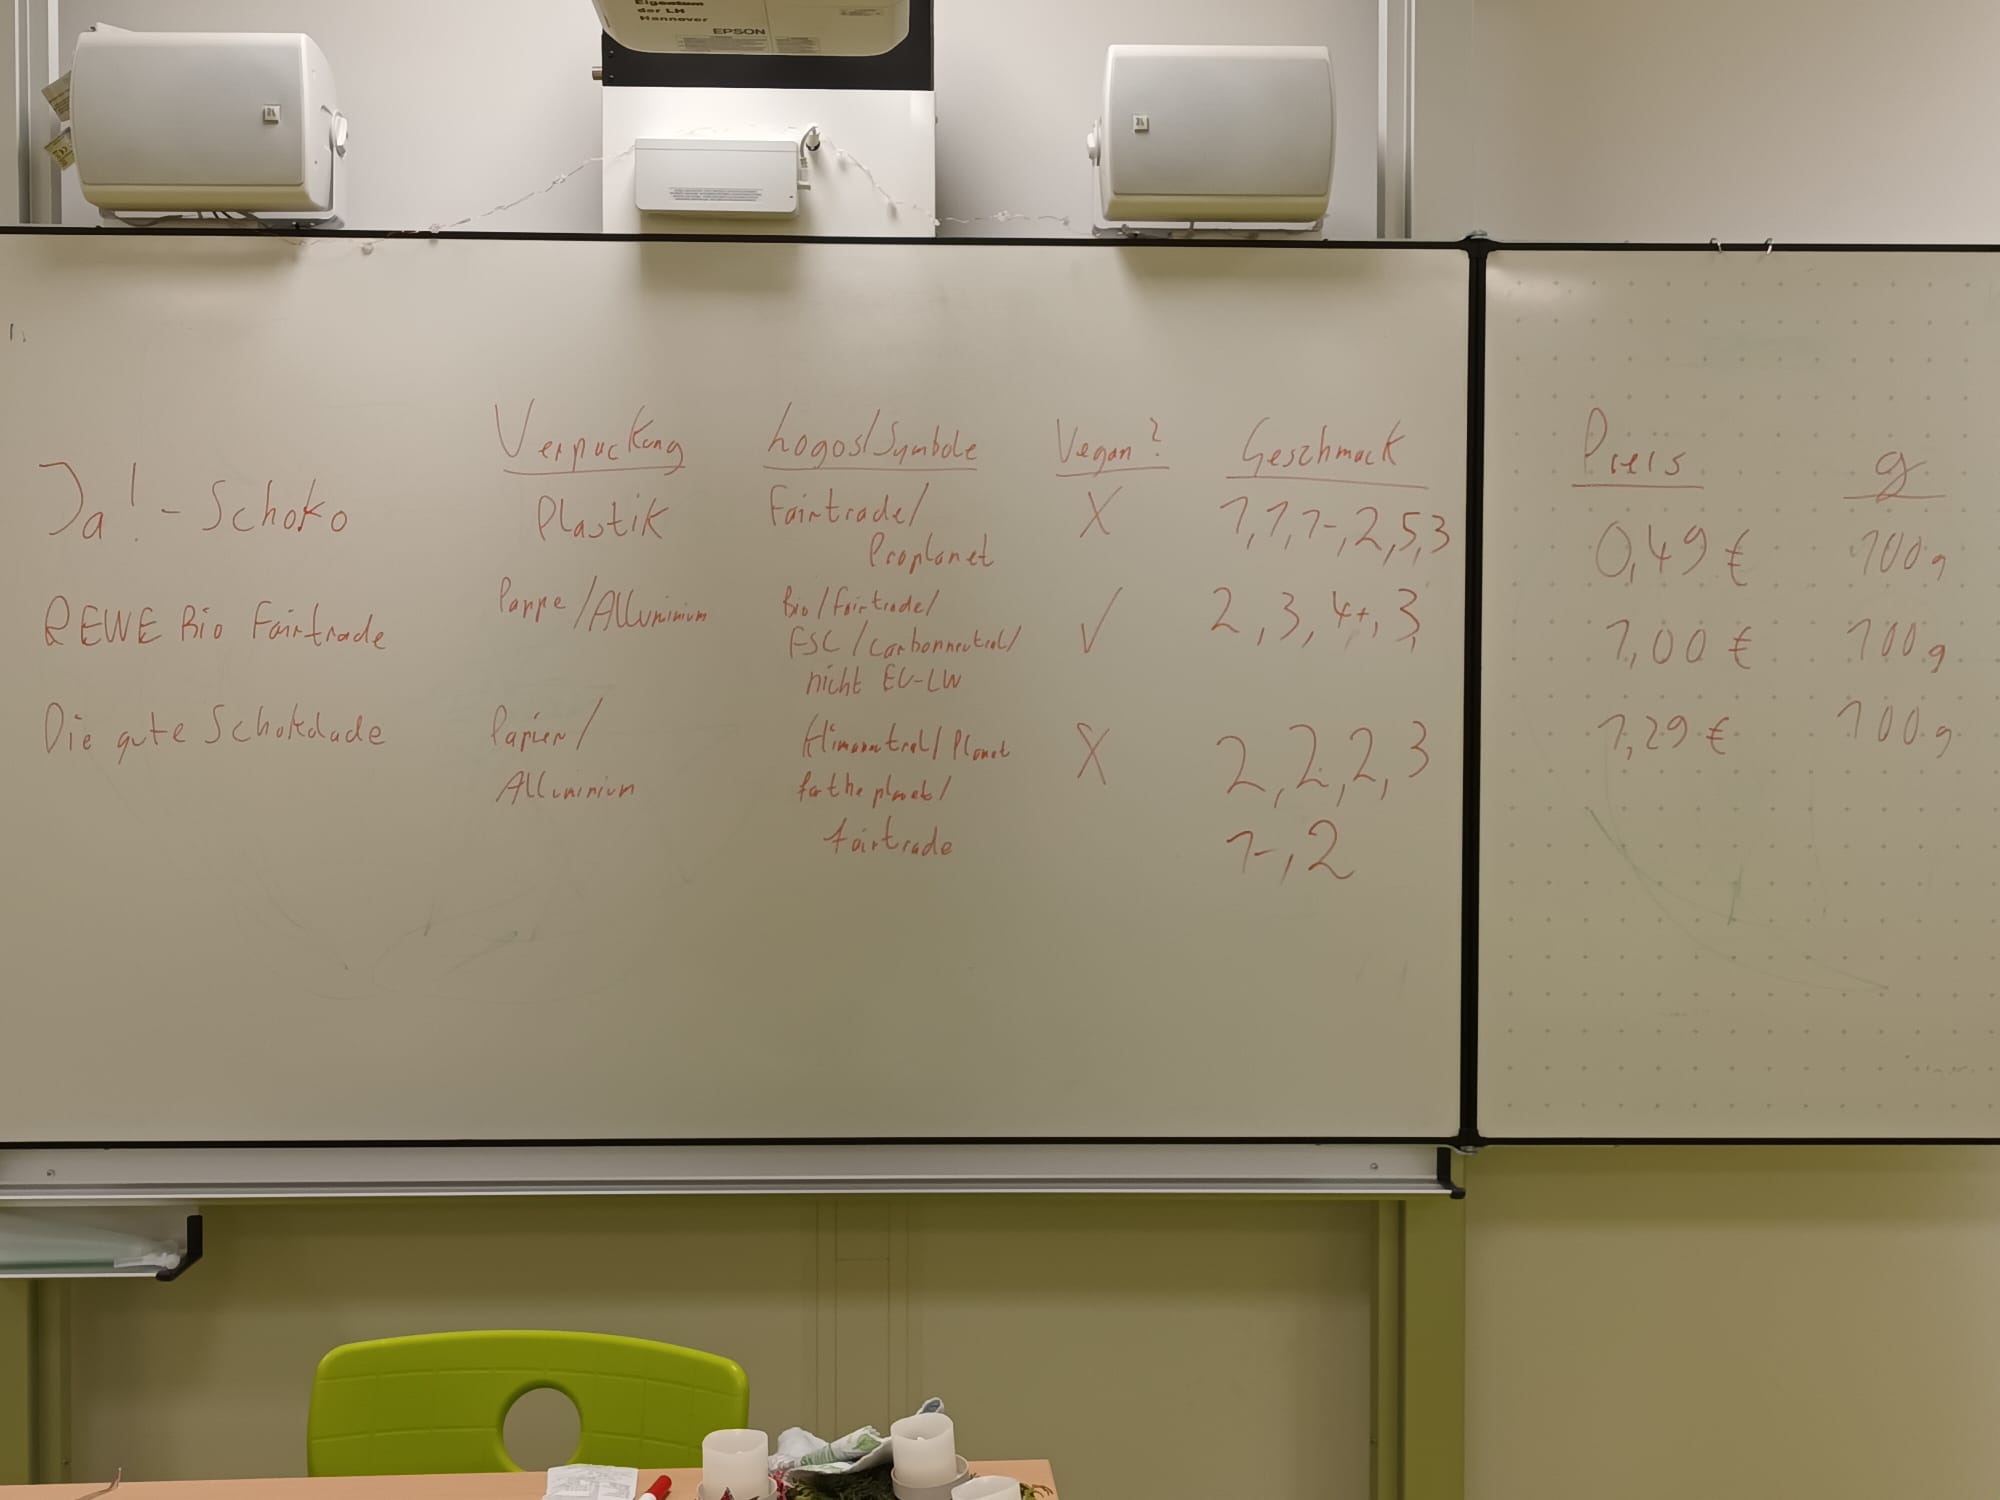 Eigentum
der LH
Hannover
EPSON
Verpackung Logos/Symbole Vegan? Geschmack Preis g
Ja! - Schoko Plastik Fairtrade/ X 1,1,1-,2,5,3 0,49 € 100g
Proplanet
REWE Bio Fairtrade Pappe/Alluminium Bio/Fairtrade/ ✓ 2,3,4+,3, 1,00 € 100g
FSC/Carbonneutral/
nicht EU-LW
Die gute Schokolade Papier/ Klimaneutral/Planet X 2,2,2,3 1,29 € 100g
Alluminium for the planet/
fairtrade 1-,2